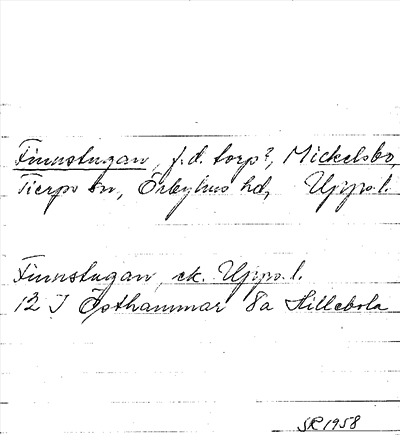 Finnstugan, f.d. torp?, Mickelsbo,
Tierps sn, Örbyhus hd, Upps.l.
Finnstugan, ek. Upps.l.
12 I Östhammar 8a Hillebola
SR 1958